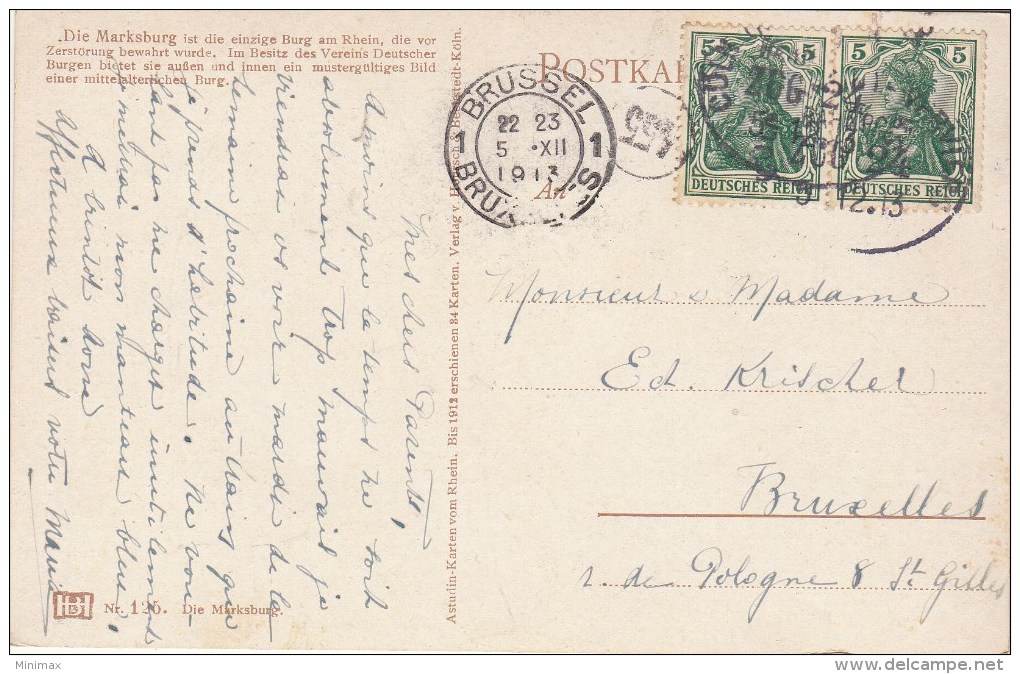 Die Marksburg ist die einzige Burg am Rhein, die vor
Zerstörung bewahrt wurde. Im Besitz des Vereins Deutscher
Burgen bietet sie außen und innen ein mustergültiges Bild
einer mittelalterlichen Burg.
POSTKAR
An
BRUSSEL
1 22 23 1
5 XII
1913
5 5
5 5
DEUTSCHES REICH
DEUTSCHES REICH
ZUG
12.13
Mes chers Parents,
A moins que le temps ne soit
absolument trop mauvais je
viendrai vs voir mardi de la
semaine prochaine au train que
je prends d'habitude. Ne
pas me charger inutilement
mon manteau bleu.
A bientôt donc
Affectueux baisers votre Maria
Monsieur & Madame
Ed. Krischer
Bruxelles
r. de Pologne 8 St Gilles
Asturdin-Karten vom Rhein. Bis 1912 erschienen 84 Karten. Verlag v.
HB Nr. 125. Die Marksburg.
Minimax
www.delcampe.net